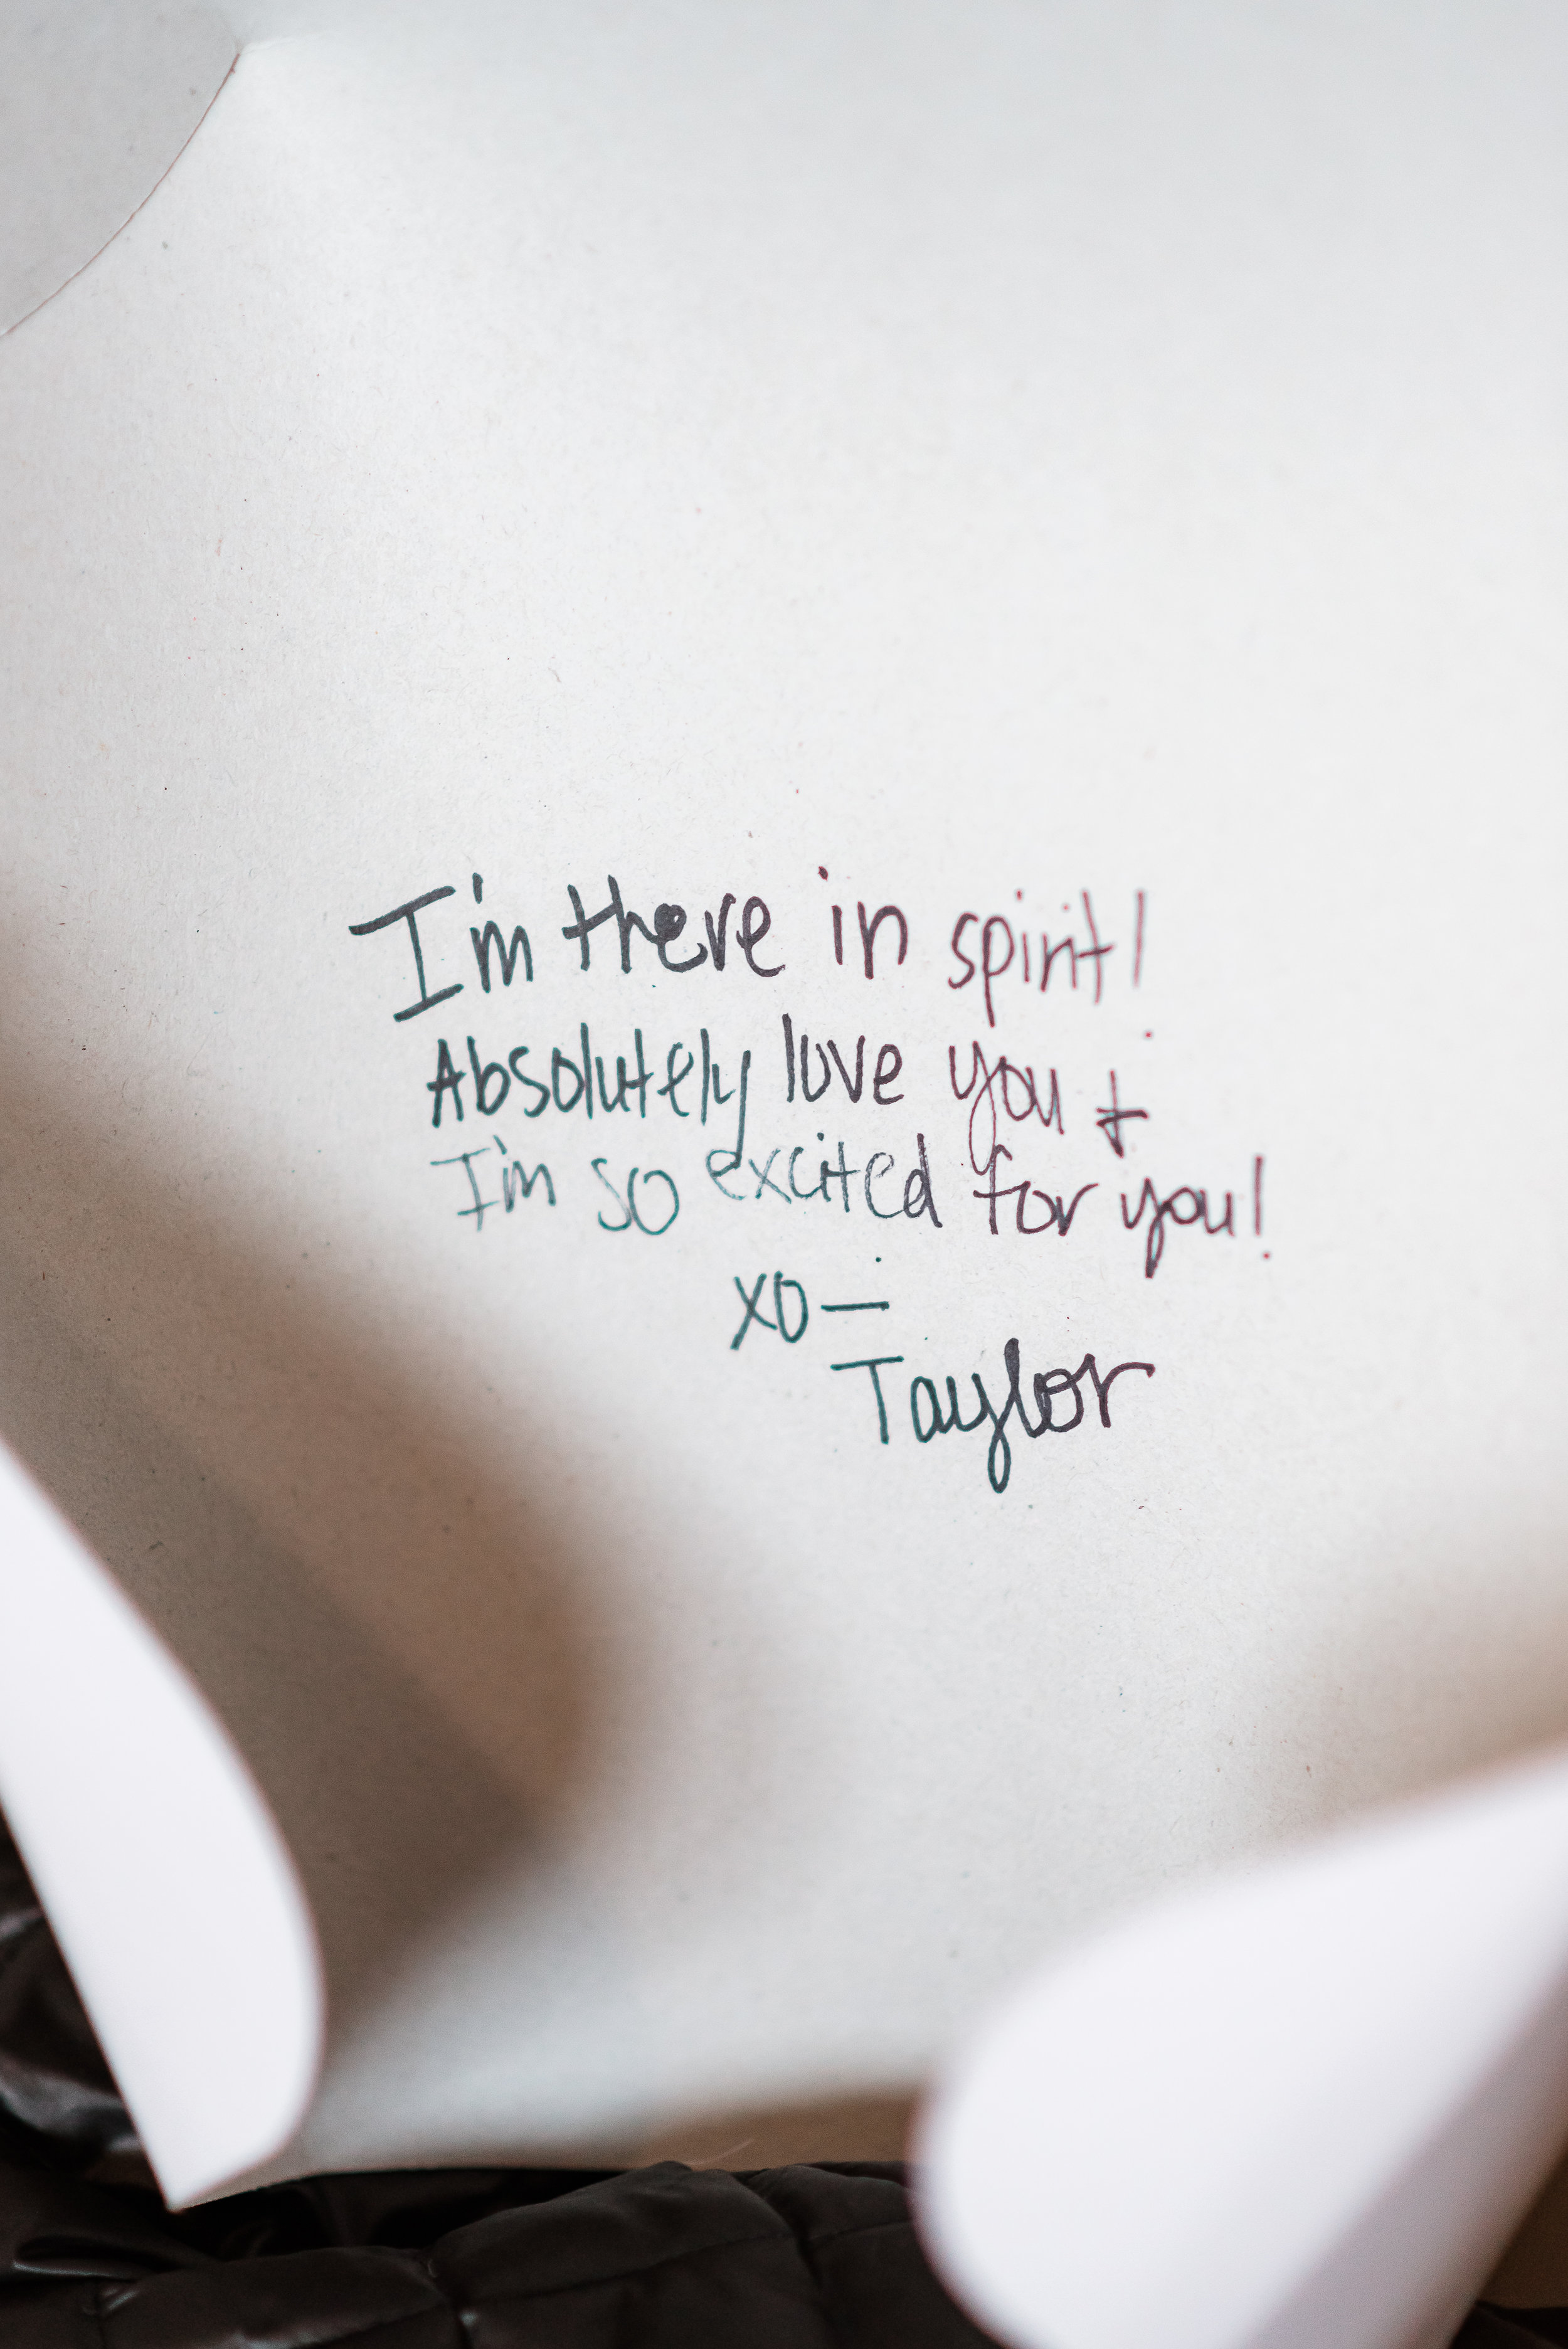 I'm there in spirit!
Absolutely love you +
I'm so excited for you!
xo —
Taylor